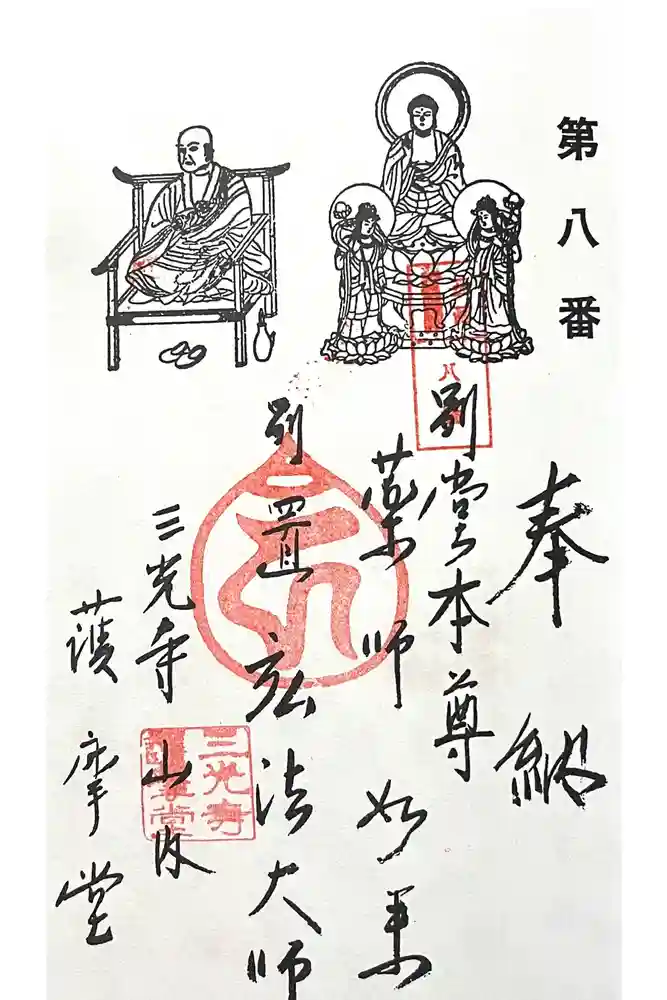 第八番
奉納
別堂本尊
薬師如来
別置弘法大師
三光寺山内
護摩堂
三光寺
護摩堂